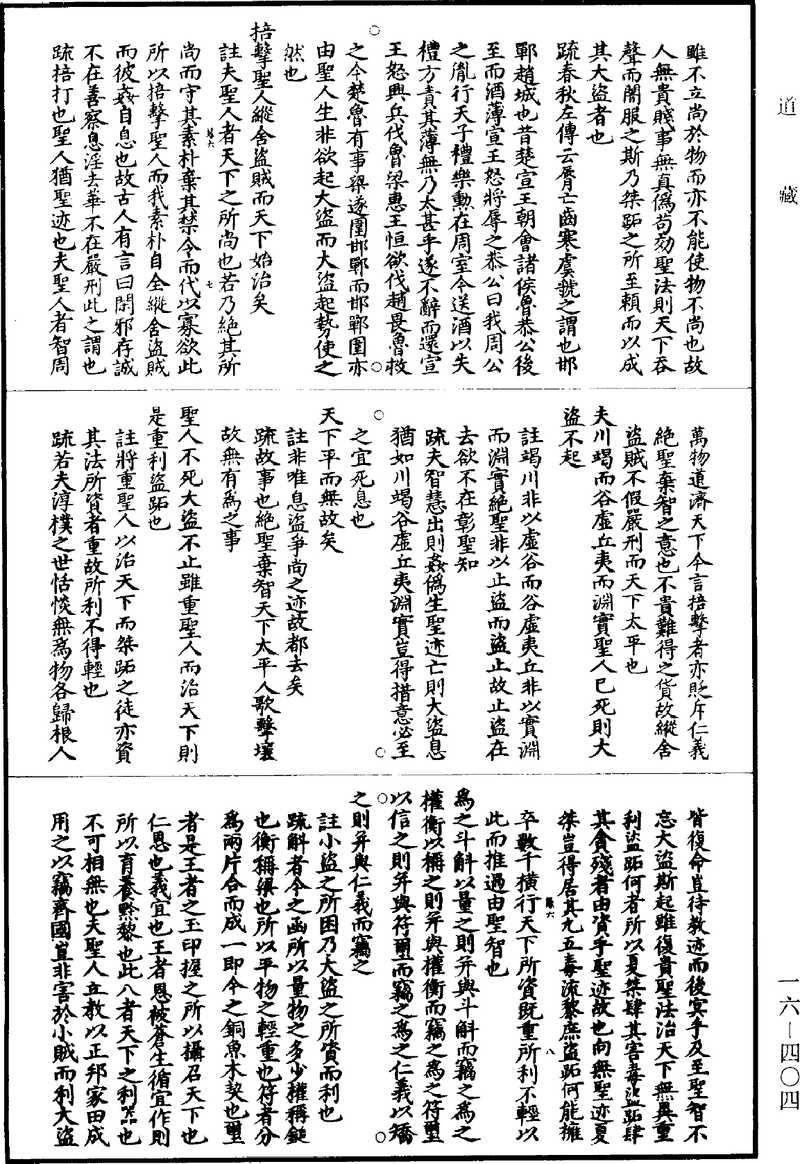 道藏
雖不立尚於物而亦不能使物不尚也故
人無貴賤事無真偽茍効聖法則天下吞
聲而闇服之斯乃桀跖之所至賴而以成
其大盜者也
疏春秋左傳云脣亡齒寒虞虢之謂也邯
鄲趙城也昔楚宣王朝會諸侯魯恭公後
至而酒薄宣王怒將辱之恭公曰我周公
之胤行天子禮樂勳在周室今送酒以失
禮方責其薄無乃太甚乎遂不辭而還宣
王怒興兵伐魯梁惠王恒欲伐趙畏魯救
之今楚魯有事梁遂圍邯鄲而邯鄲圍亦
由聖人生非欲起大盜而大盜起勢使之
然也
掊擊聖人縱舍盜賊而天下始治矣
註夫聖人者天下之所尚也若乃絕其所
尚而守其素朴棄其禁令而代以寡欲此
所以掊擊聖人而我素朴自全縱舍盜賊
而彼姦自息也故古人有言曰閑邪存誠
不在善察息淫去華不在嚴刑此之謂也
疏掊打也聖人猶聖迹也夫聖人者智周
萬物道濟天下今言掊擊者亦貶斥仁義
絕聖棄智之意也不貴難得之貨故縱舍
盜賊不假嚴刑而天下太平也
夫川竭而谷虛丘夷而淵實聖人已死則大
盜不起
註竭川非以虛谷而谷虛夷丘非以實淵
而淵實絕聖非以止盜而盜止故止盜在
去欲不在彰聖知
疏夫智慧出則姦偽生聖迹亡則大盜息
猶如川竭谷虛丘夷淵實豈得措意必至
之宜死息也
天下平而無故矣
註非唯息盜爭尚之迹故都去矣
疏故事也絕聖棄智天下太平人歌擊壤
故無有為之事
聖人不死大盜不止雖重聖人而治天下則
是重利盜跖也
註將重聖人以治天下而桀跖之徒亦資
其法所資者重故所利不得輕也
疏若夫淳樸之世恬惔無為物各歸根人
皆復命豈待教迹而後冥乎及至聖智不
忘大盜斯起雖復貴聖法治天下無異重
利盜跖何者所以夏桀肆其害毒盜跖肆
其貪殘者由資乎聖迹故也向無聖迹夏
桀豈得居其九五毒流黎庶盜跖何能擁
卒數千橫行天下所資既重所利不輕以
此而推過由聖智也
為之斗斛以量之則并與斗斛而竊之為之
權衡以稱之則并與權衡而竊之為之符璽
以信之則并與符璽而竊之為之仁義以矯
之則并與仁義而竊之
註小盜之所困乃大盜之所資而利也
疏斛者今之函所以量物之多少權稱鎚
也衡稱樑也所以平物之輕重也符者分
為兩片合而成一即今之銅魚木契也璽
者是王者之玉印握之所以攝召天下也
仁恩也義宜也王者恩被蒼生循宜作則
所以育養黔黎也此八者天下之利器也
不可相無也夫聖人立教以正邦家田成
用之以竊齊國豈非害於小賊而利大盜
一六-四〇四